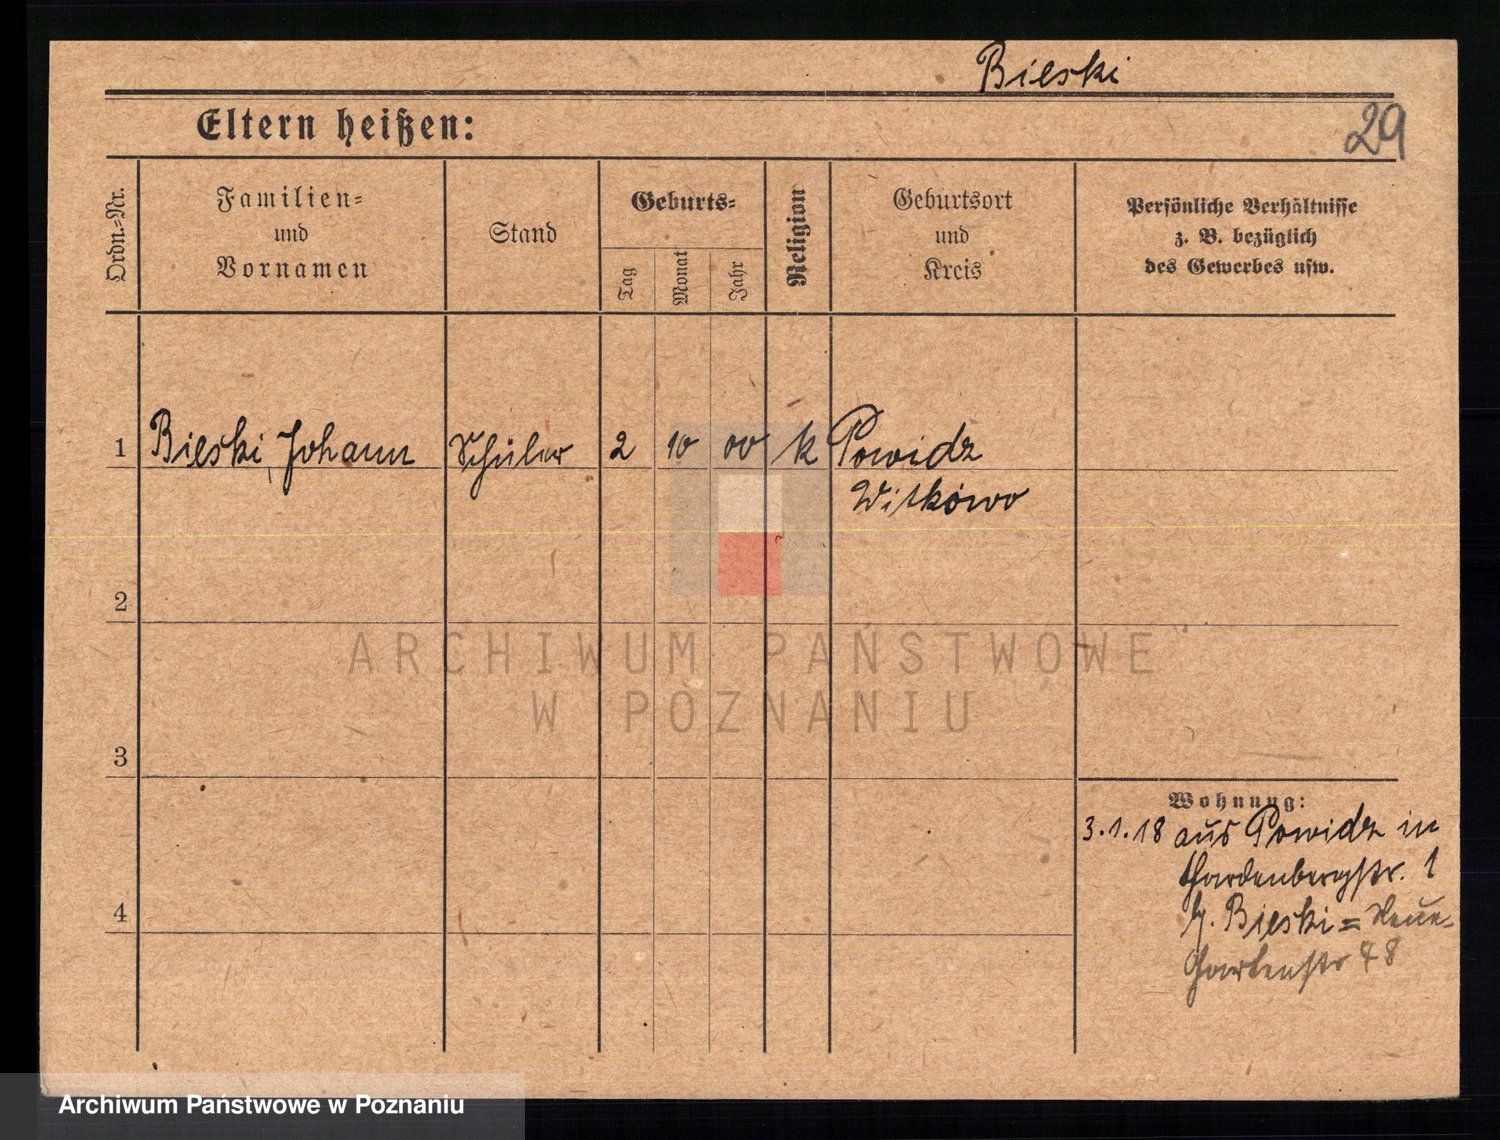 Bieski
29
Eltern heißen:
Ordn.-Nr.
Familien-
und
Vornamen
Stand
Geburts-
Tag
Monat
Jahr
Religion
Geburtsort
und
Kreis
Persönliche Verhältnisse
z. B. bezüglich
des Gewerbes usw.
1 Bieski, Johann Schüler 2 10 00 k Powidz
Witkowo
2
3
4
Wohnung:
3.1.18 aus Powidz in
Hardenbergstr. 1
b. Bieski = Neue-
Gartenstr 48
ARCHIWUM PAŃSTWOWE
W POZNANIU
Archiwum Państwowe w Poznaniu